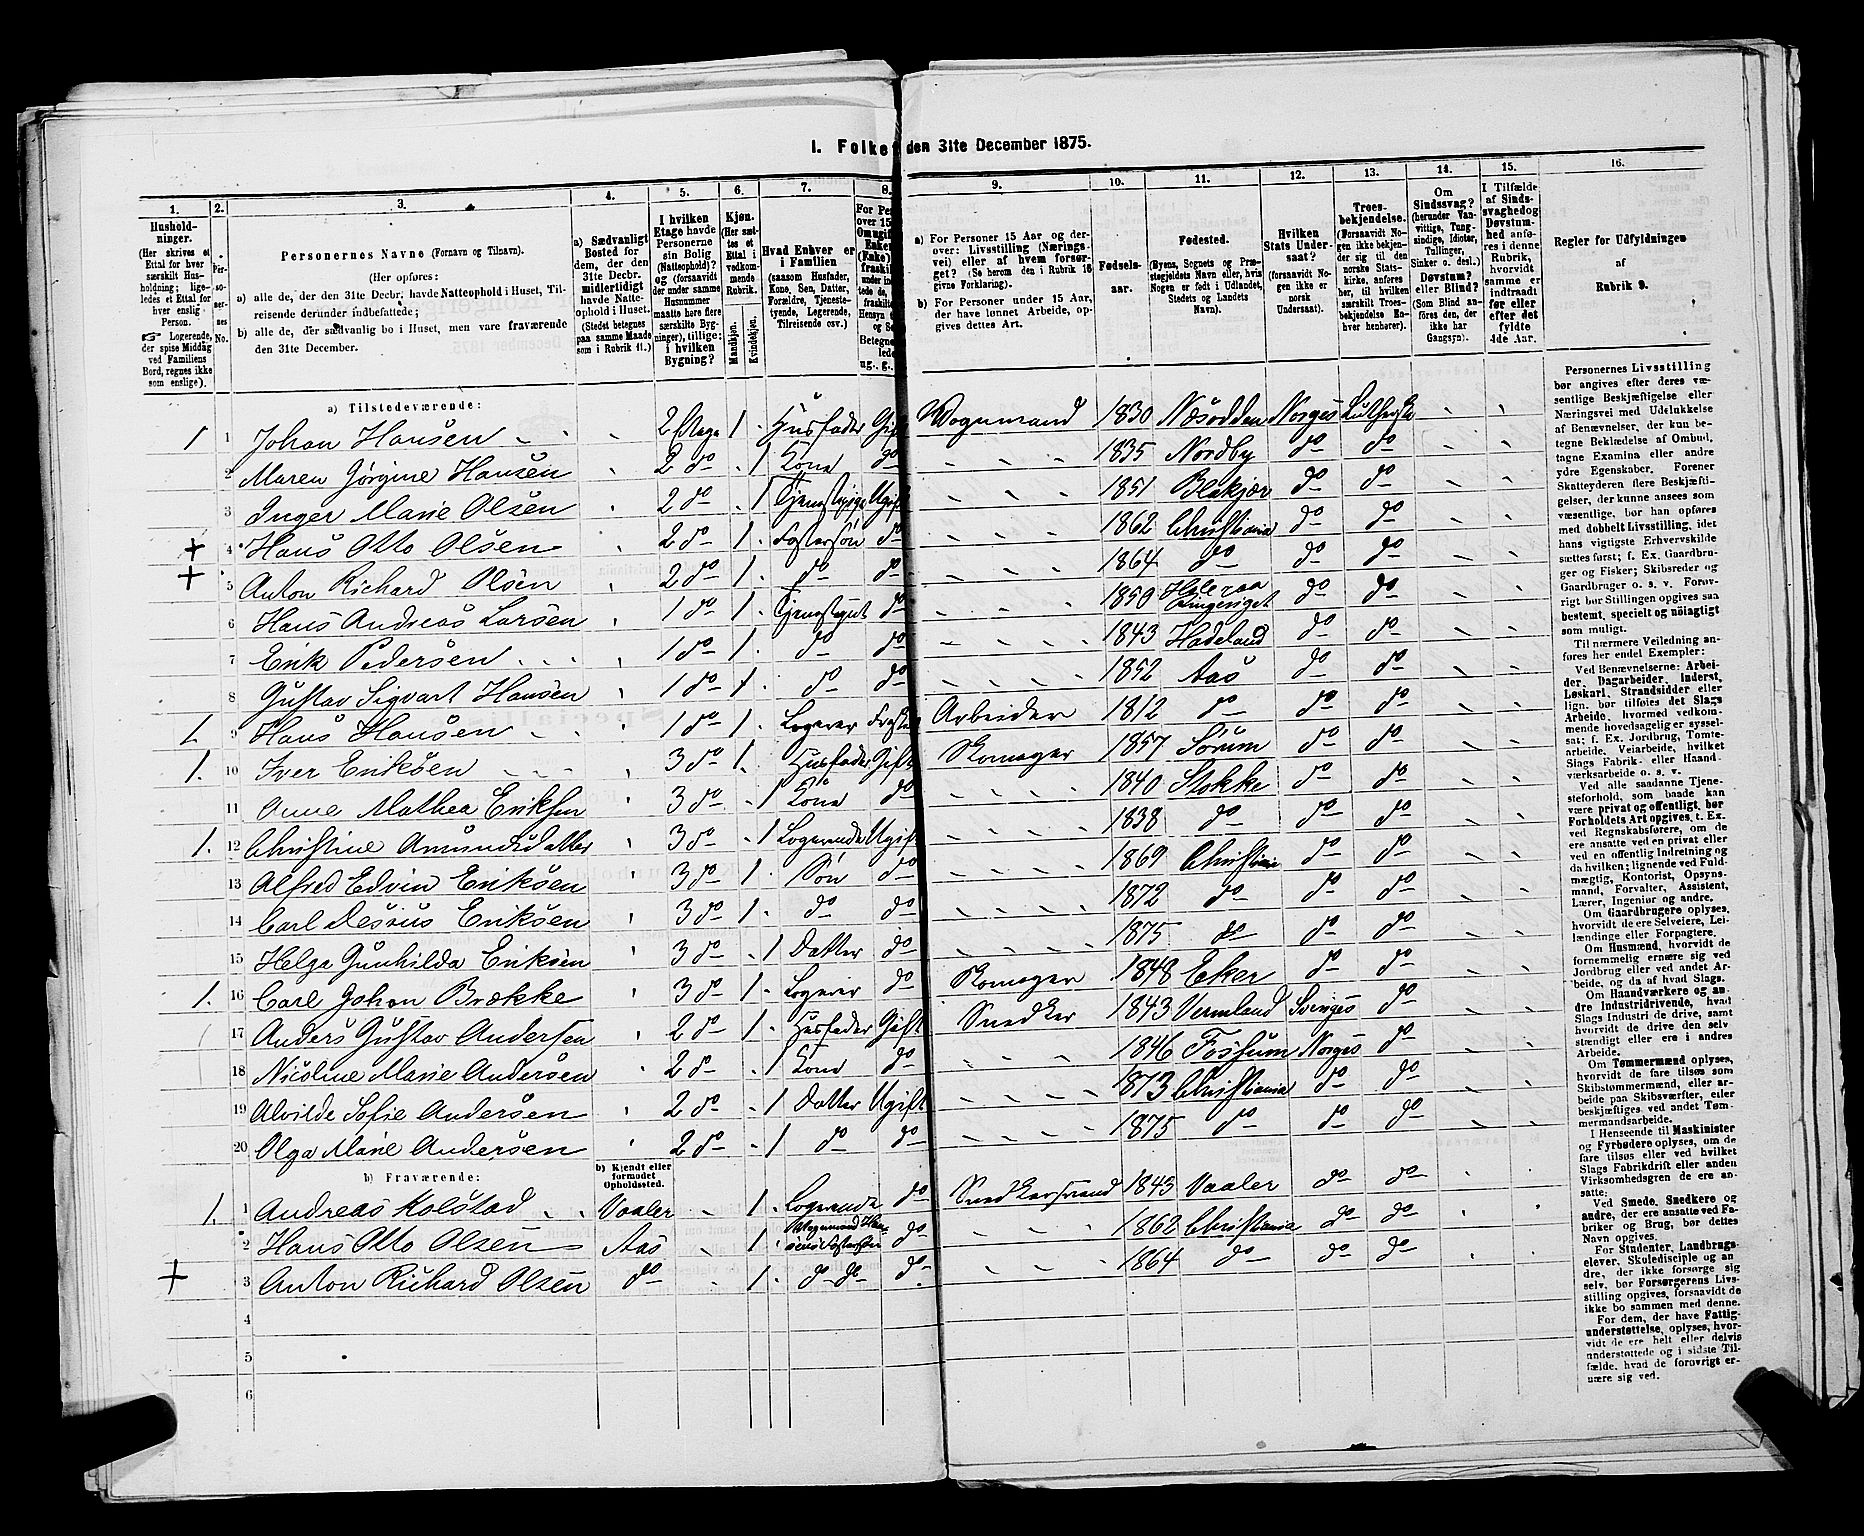 I. Folket den 31te December 1875.
1. 2. 3. 4. 5. 6. 7. 8. 9. 10. 11. 12. 13. 14. 15. 16.
Hushold-
ninger.
(Her skrives et
Ettal for hver
særskilt Hus-
holdning; lige-
ledes et Ettal for
hver enslig
Person.
☞ Logerende,
der spise Middag
ved Familiens
Bord, regnes ikke
som enslige).
Per-
soner-
nes
No.
Personernes Navne (Fornavn og Tilnavn).
(Her opføres:
a) alle de, der den 31te Decbr. havde Natteophold i Huset, Til-
reisende derunder indbefattede;
b) alle de, der sædvanlig bo i Huset, men vare fraværende
den 31te December.
a) Sædvanligt
Bosted for
dem, der den
31te Decbr.
midlertidigt
havde Natte-
ophold i Huset.
(Stedet betegnes
paa samme Maade
som i Rubrik 11.)
I hvilken
Etage havde
Personerne
sin Bolig
(Natteophold)?
og (forsaavidt
der under samme
Husnummer
maatte høre flere
særskilte Byg-
ninger), tillige:
i hvilken
Bygning?
Kjøn.
(Her sæt-
tes et
Ettal i
vedkom-
mende
Rubrik.
Mandkjøn.
Kvindekjøn.
Hvad Enhver er
i Familien
(saasom Husfader,
Kone, Søn, Datter,
Forældre, Tjeneste-
tyende, Logerende,
Tilreisende osv.)
a) For Personer 15 Aar og der-
over: Livsstilling (Nærings-
vei) eller af hvem forsør-
get? (Se herom den i Rubrik 16
givne Forklaring).
b) For Personer under 15 Aar,
der have lønnet Arbeide, op-
gives dettes Art.
Fødsels-
aar.
Fødested.
(Byens, Sognets og Præ-
stegjeldets Navn eller, hvis
Nogen er født i Udlandet,
Stedets og Landets
Navn).
Hvilken
Stats Under-
saat?
(forsaavidt No-
gen ikke er
norsk
Undersaat).
Troes-
bekjendelse.
(Forsaavidt No-
gen ikke bekjen-
der sig til den
norske Stats-
kirke, anføres
her, til hvilket
særskilt Troes-
bekjendelse En-
hver henhører).
Om
Sindssvag?
(herunder Van-
vittige, Tung-
sindige, Idioter,
Tullinger,
Sinker o. desl.)
Døvstum?
eller Blind?
(Som Blind an-
føres den, der
ikke har
Gangsyn).
I Tilfælde
af Sinds-
svaghed og
Døvstum-
hed anfø-
res i denne
Rubrik,
hvorvidt
samme er
indtraadt
før eller
efter det
fyldte
4de Aar.
Regler for Udfyldningen
af
Rubrik 9.
a) Tilstedeværende:
1 1 Johan Hansen 2 Etage 1 Husfader Gift Vognmand 1830 Næsodden Norges Lutherske
2 Maren Jørgine Hansen 2 do 1 Kone do 1835 Nordby do do
3 Inger Marie Olsen 2 do 1 Tjenestepige Ugift 1851 Blakjær do do
+ 4 Hans Otto Olsen 2 do 1 Fostersøn do 1862 Christiania do do
+ 5 Anton Richard Olsen 2 do 1 do do 1864 do do do
6 Hans Andreas Larsen 1 do 1 Tjenestegut do 1850 Ringeriget do do
7 Erik Pedersen 1 do 1 do do 1843 Hadeland do do
8 Gustav Sigvart Hansen 1 do 1 do do 1852 Aas do do
1 9 Hans Hansen 1 do 1 Logerer Arbeider 1812 do do do
1. 10 Iver Eriksen 3 do 1 Husfader Gift Skomager 1857 Sørum do do
11 Anne Mathea Eriksen 3 do 1 Kone do 1840 Stokke do do
1. 12 Christine Amundsdatter 3 do 1 Logerende Ugift 1838 do do do
13 Alfred Edvin Eriksen 3 do 1 Søn do 1869 Christiania do do
14 Carl Eriksen 3 do 1 do do 1872 do do do
15 Helga Gunhilda Eriksen 3 do 1 Datter do 1875 do do do
1. 16 Carl Johan Brække 3 do 1 Logerer do Skomager 1848 Eker do do
1 17 Anders Gustav Andersen 2 do 1 Husfader Gift Snedker 1843 Vermland Sveriges do
18 Nicoline Marie Andersen 2 do 1 Kone do 1846 Fossum Norges do
19 Alvilde Sofie Andersen 2 do 1 Datter Ugift 1873 Christiania do do
20 Olga Marie Andersen 2 do 1 do do 1875 do do do
b) Fraværende:
b) Kjendt eller
formodet
Opholdssted.
1. 1 Andreas Kolstad Vaaler 1 Logerende do Snedkersvend 1843 Vaaler do do
2 Hans Otto Olsen Aas 1 Vognmand Hansens Fostersøn do 1862 Christiania do do
+ 3 Anton Richard Olsen do 1 do do do 1864 do do do
4
5
6
Personernes Livsstilling
bør angives efter deres væ-
sentlige Beskjæftigelse eller
Næringsvei med Udelukkelse
af Benævnelser, der kun be-
tegne Beklædelse af Ombud,
tagne Examina eller andre
ydre Egenskaber. Forener
Skatteyderen flere Beskjæfti-
gelser, der kunne ansees som
væsentlige, bør han opføres
med dobbelt Livsstilling, idet
hans vigtigste Erhvervskilde
sættes først; f. Ex. Gaardbru-
ger og Fisker; Skibsreder og
Gaardbruger o. s. v. Forøv-
rigt bør Stillingen opgives saa
bestemt, specielt og nöiagtigt
som muligt.
Til nærmere Veiledning an-
føres her endel Exempler:
Ved Benævnelserne: Arbei-
der, Dagarbeider, Inderst,
Løskarl, Strandsidder eller
lign. bør tilføies det Slags
Arbeide, hvormed vedkom-
mende hovedsagelig er syssel-
sat; f. Ex. Jordbrug, Tomte-
arbeide, Veiarbeide, hvilket
Slags Fabrik- eller Haand-
værksarbeide o. s. v.
Ved alle saadanne Tjene-
steforhold, som baade kan
være privat og offentligt, bør
Forholdets Art opgives, t. Ex.
ved Regnskabsførere, om de
ere ansatte ved en privat eller
ved en offentlig Indretning og
da hvilken; lignende ved Fuld-
mægtig, Kontorist, Opsyns-
mand, Forvalter, Assistent,
Lærer, Ingeniør og andre.
Om Gaardbrugere oplyses,
hvorvidt de ere Selveiere, Lei-
lændinge eller Forpagtere.
Om Husmænd, hvorvidt de
fornemmelig ernære sig ved
Jordbrug eller ved andet Ar-
beide, og da af hvad Slags.
Om Haandværkere og an-
dre Industridrivende, hvad
Slags Industri de drive, samt
hvorvidt de drive den selv-
stændigt eller ere i andres
Arbeide.
Om Tømmermænd oplyses,
hvorvidt de fare tilsøs som
Skibstømmermænd, eller ar-
beide paa Skibsværfter, eller
beskjæftiges ved andet Tøm-
mermandsarbeide.
I Henseende til Maskinister
og Fyrbødere oplyses, om de
fare tilsøs eller ved hvilket
Slags Fabrikdrift eller anden
Virksomhedsgren de ere an-
satte.
Ved Smede, Snedkere og
andre, der ere ansatte ved Fa-
briker og Brug, bør dettes
Navn opgives.
For Studenter, Landbrugs-
elever, Skoledisciple og an-
dre, der ikke forsørge sig
selv, bør Forsørgerens Livs-
stilling opgives, forsaavidt de
ikke bo sammen med denne.
For dem, der have Fattig-
understøttelse, oplyses, hvor-
vidt de ere helt eller delvis
understøttede og i sidste Til-
fælde, hvad de forøvrigt er-
nære sig ved.